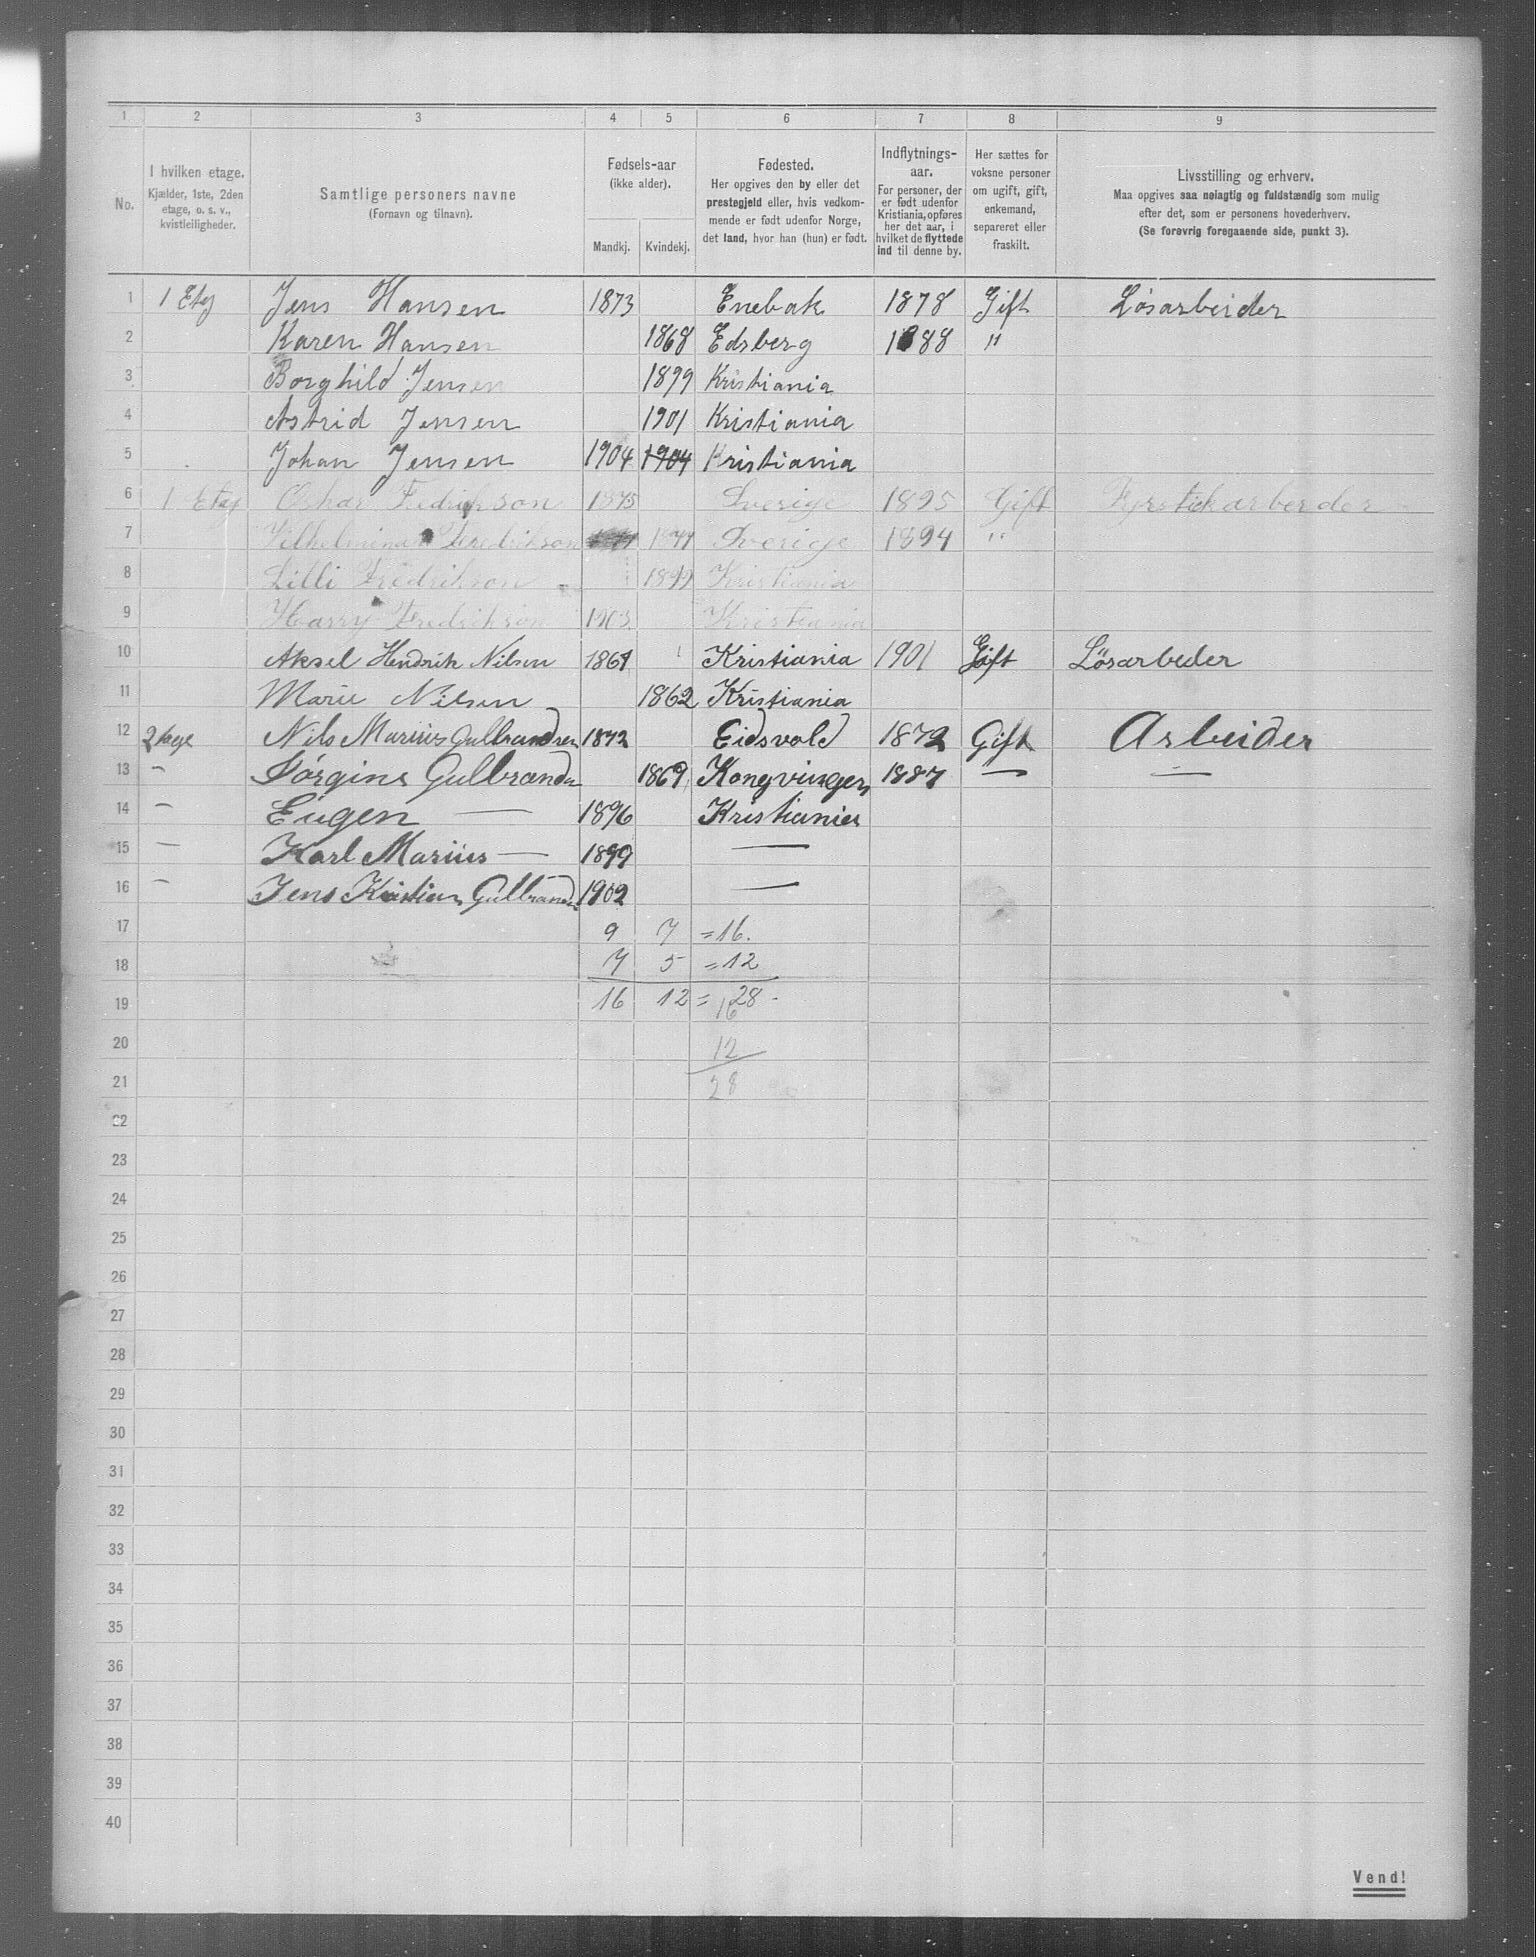 1 2 3 4 5 6 7 8 9
No.
I hvilken etage.
Kjælder, 1ste, 2den
etage, o. s. v.,
kvistleiligheder.
Samtlige personers navne
(Fornavn og tilnavn).
Fødsels-aar
(ikke alder).
Mandkj. Kvindekj.
Fødested.
Her opgives den by eller det
prestegjeld eller, hvis vedkom-
mende er født udenfor Norge,
det land, hvor han (hun) er født.
Indflytnings-
aar.
For personer, der
er født udenfor
Kristiania, opføres
her det aar, i
hvilket de flyttede
ind til denne by.
Her sættes for
voksne personer
om ugift, gift,
enkemand,
separeret eller
fraskilt.
Livsstilling og erhverv.
Maa opgives saa nøiagtig og fuldstændig som mulig
efter det, som er personens hovederhverv.
(Se forøvrig foregaaende side, punkt 3).
1 1 Etg Jens Hansen 1873 Enebak 1878 Gift Løsarbeider
2 Karen Hansen 1868 Edsberg 1888 "
3 Borghild Jensen 1899 Kristiania
4 Astrid Jensen 1901 Kristiania
5 Johan Jensen 1904 1904 Kristiania
6 1 Etag Oskar Fredrikson 1875 Sverige 1895 Gift
7 Vilhelmina Fredrikson 1877 Sverige 1894 "
8 Lilli Fredrikson 1899 Kristiania
9 Harry Fredrikson 1903 Kristiania
10 Aksel Hendrik Nilsen 1861 Kristiania 1901 Gift Løsarbeder
11 Marie Nilsen 1862 Kristiania
12 Nils Marius Gulbrandsen 1872 Eidsvold 1872 Gift Arbeider
13 - Jørgine Gulbrandsn 1869 Kongvinger 1887 — —
14 - Eugen — 1896 Kristiania
15 - Karl Marius — 1899 —
16 - Jens Kristian Gulbrandsn 1902 —
17 9 7 = 16.
18 7 5 = 12
19 16 12 = 28 -
16
20 12
21 28
22
23
24
25
26
27
28
29
30
31
32
33
34
35
36
37
38
39
40
Vend!